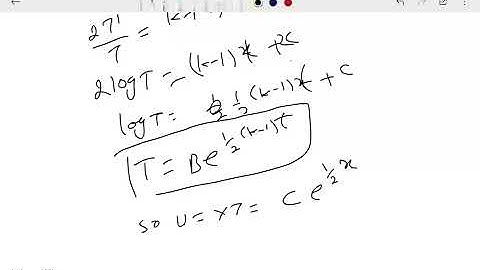 2T'/T = k-1
2logT = (k-1)t + 2C
logT = 1/2 (k-1)t + C
T = Be^{1/2(k-1)t}
so u = XT = C e^{1/2 x}